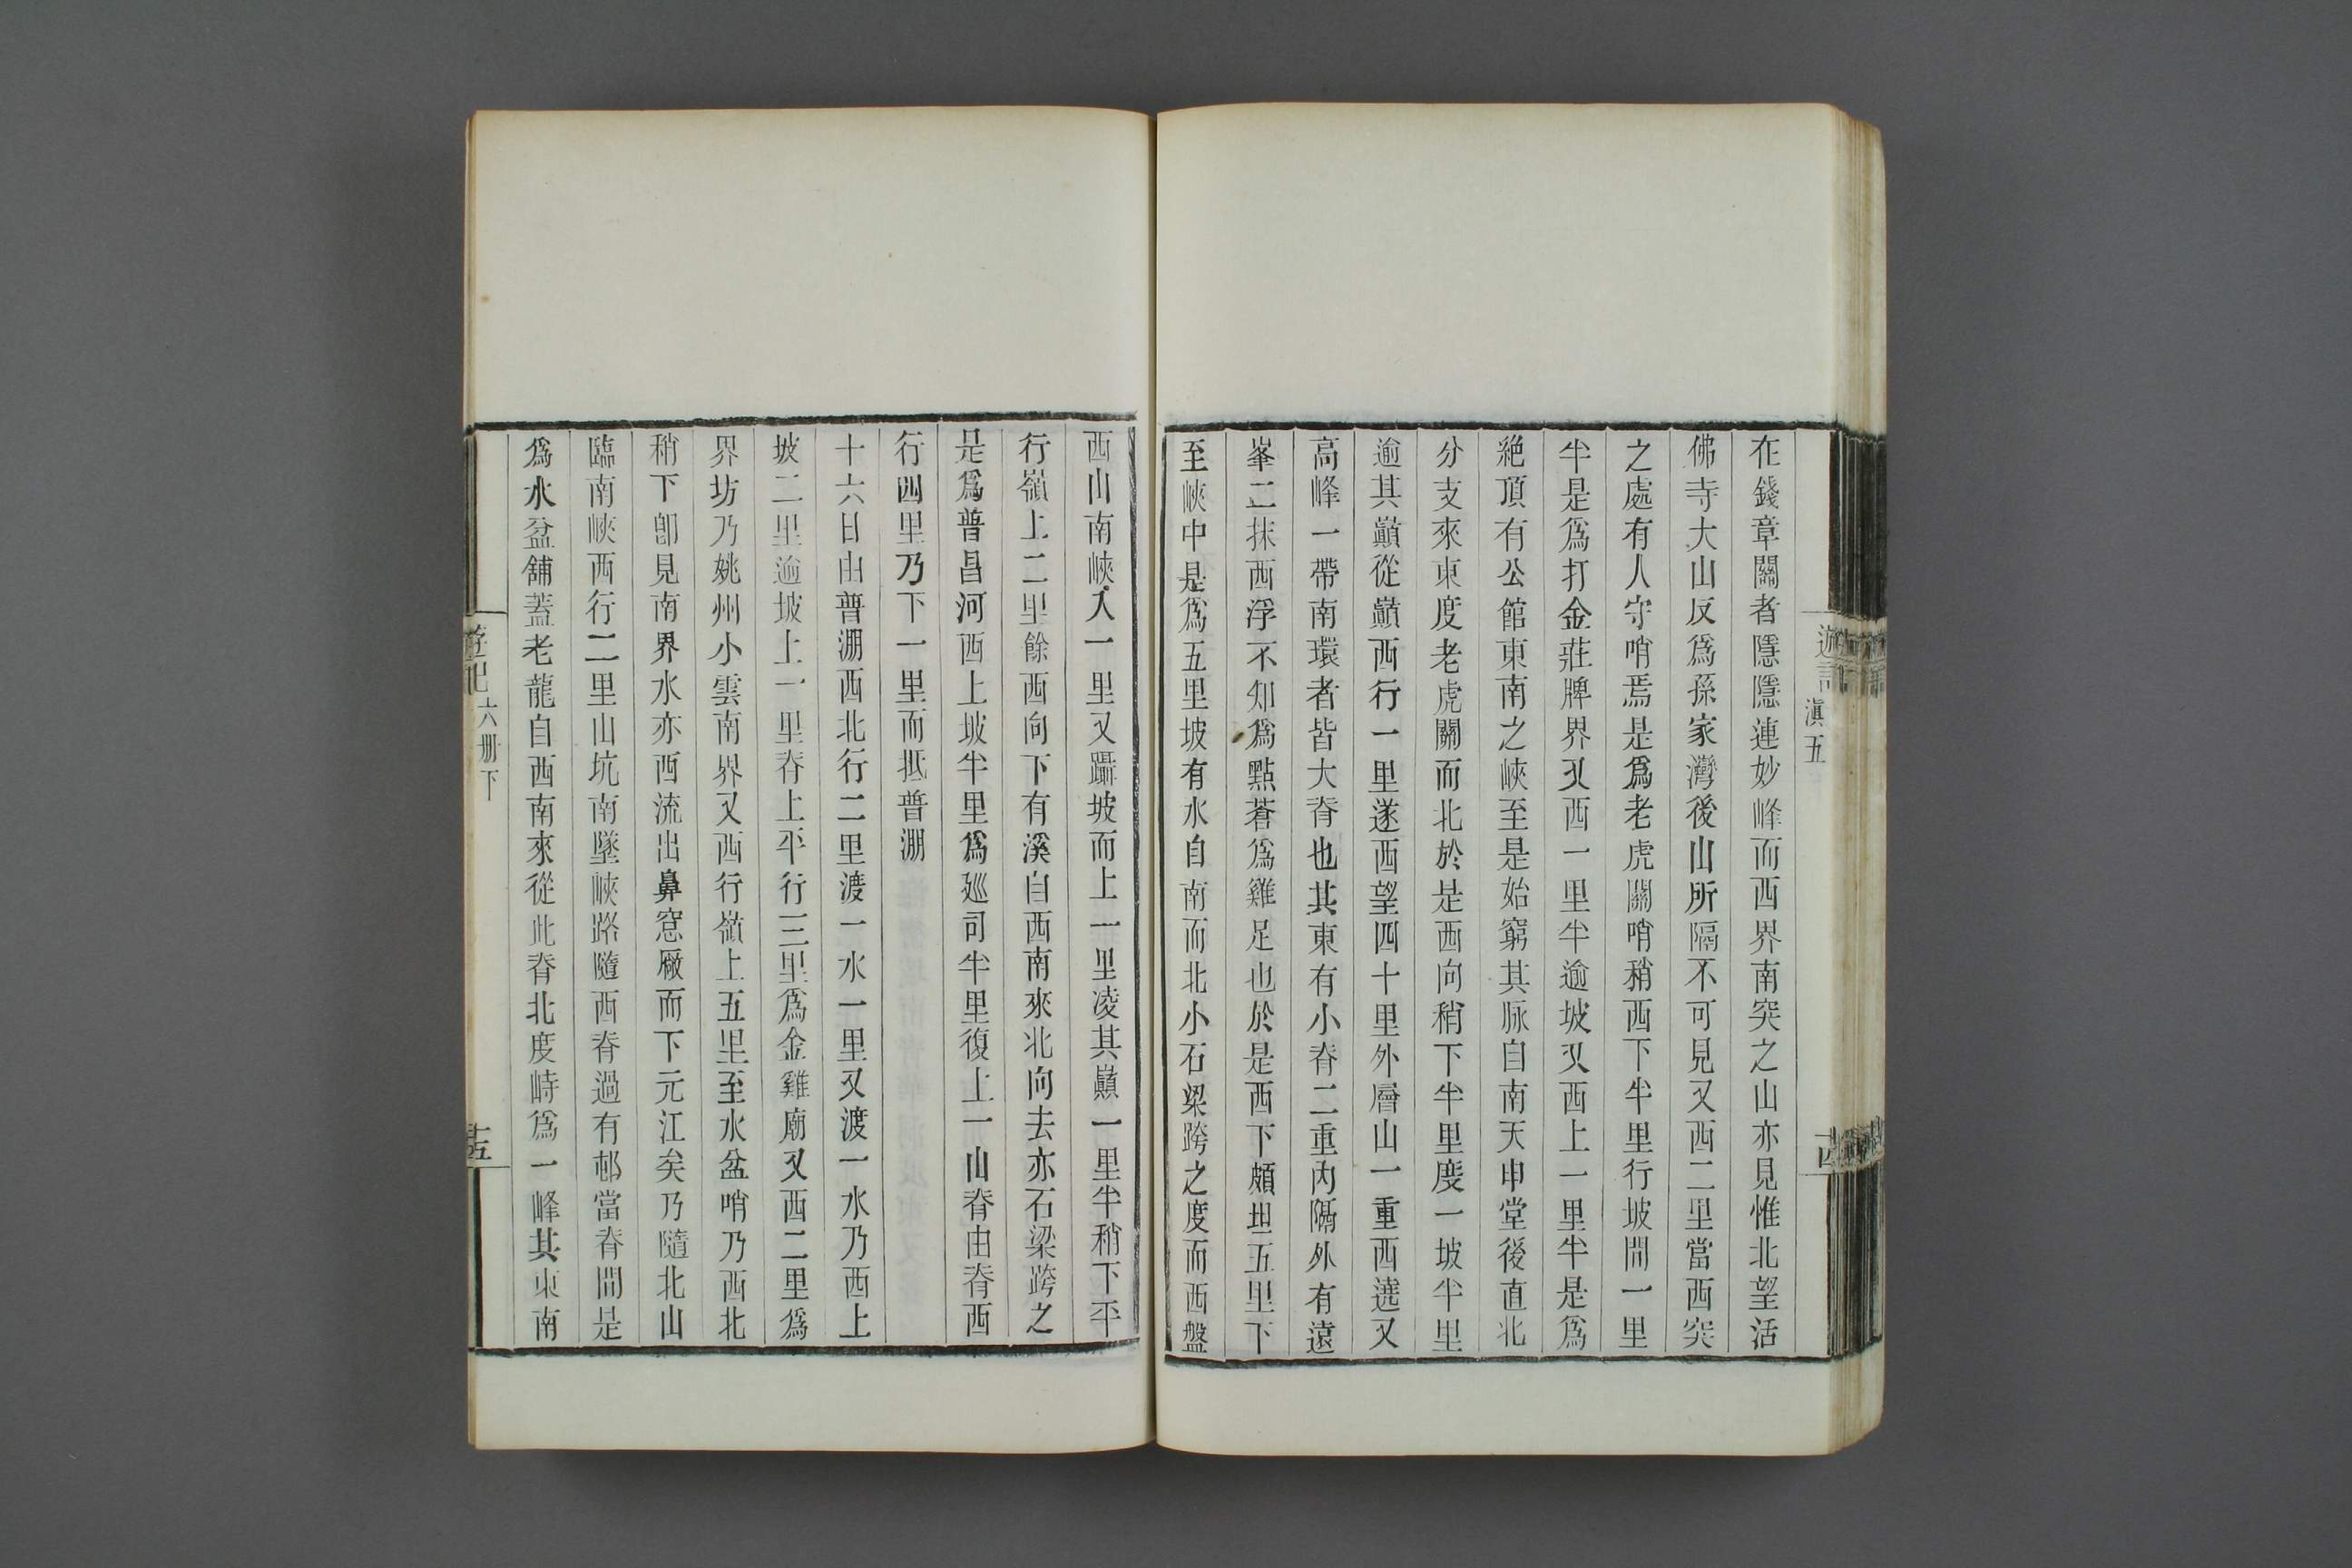 在錢章關者隱隱連妙峰而西界南突之山亦見惟北望活
佛寺大山反爲孫家灣後山所隔不可見又西二里當西突
之處有人守哨焉是爲老虎關哨稍西下半里行坡間一里
半是爲打金莊牌界又西一里半逾坡又西上一里半是爲
絶頂有公館東南之峽至是始窮其脉自南天申堂後直北
分支來東度老虎關而北於是西向稍下半里度一坡半里
逾其巔從巔西行一里遂西望四十里外層山一重西遶又
高峰一帶南環者皆大脊也其東有小脊二重內隔外有遠
峯二抹西浮不知爲點蒼爲雞足也於是西下頗坦五里下
至峽中是爲五里坡有水自南而北小石梁跨之度而西盤
西山南峽入一里又躡坡而上一里凌其巔一里半稍下平
行嶺上二里餘西向下有溪自西南來北向去亦石梁跨之
是爲普昌河西上坡半里爲廵司半里復上一山脊由脊西
行四里乃下一里而抵普淜
十六日由普淜西北行二里渡一水一里又渡一水乃西上
坡二里逾坡上一里脊上平行三里爲金雞廟又西二里爲
界坊乃姚州小雲南界又西行嶺上五里至水盆哨乃西北
稍下卽見南界水亦西流出鼻窓厰而下元江矣乃隨北山
臨南峽西行二里山坑南墜峽路隨西脊過有邨當脊間是
爲水盆舖蓋老龍自西南來從此脊北度峙爲一峰其東南
遊記
滇五
遊記
六册下
十五